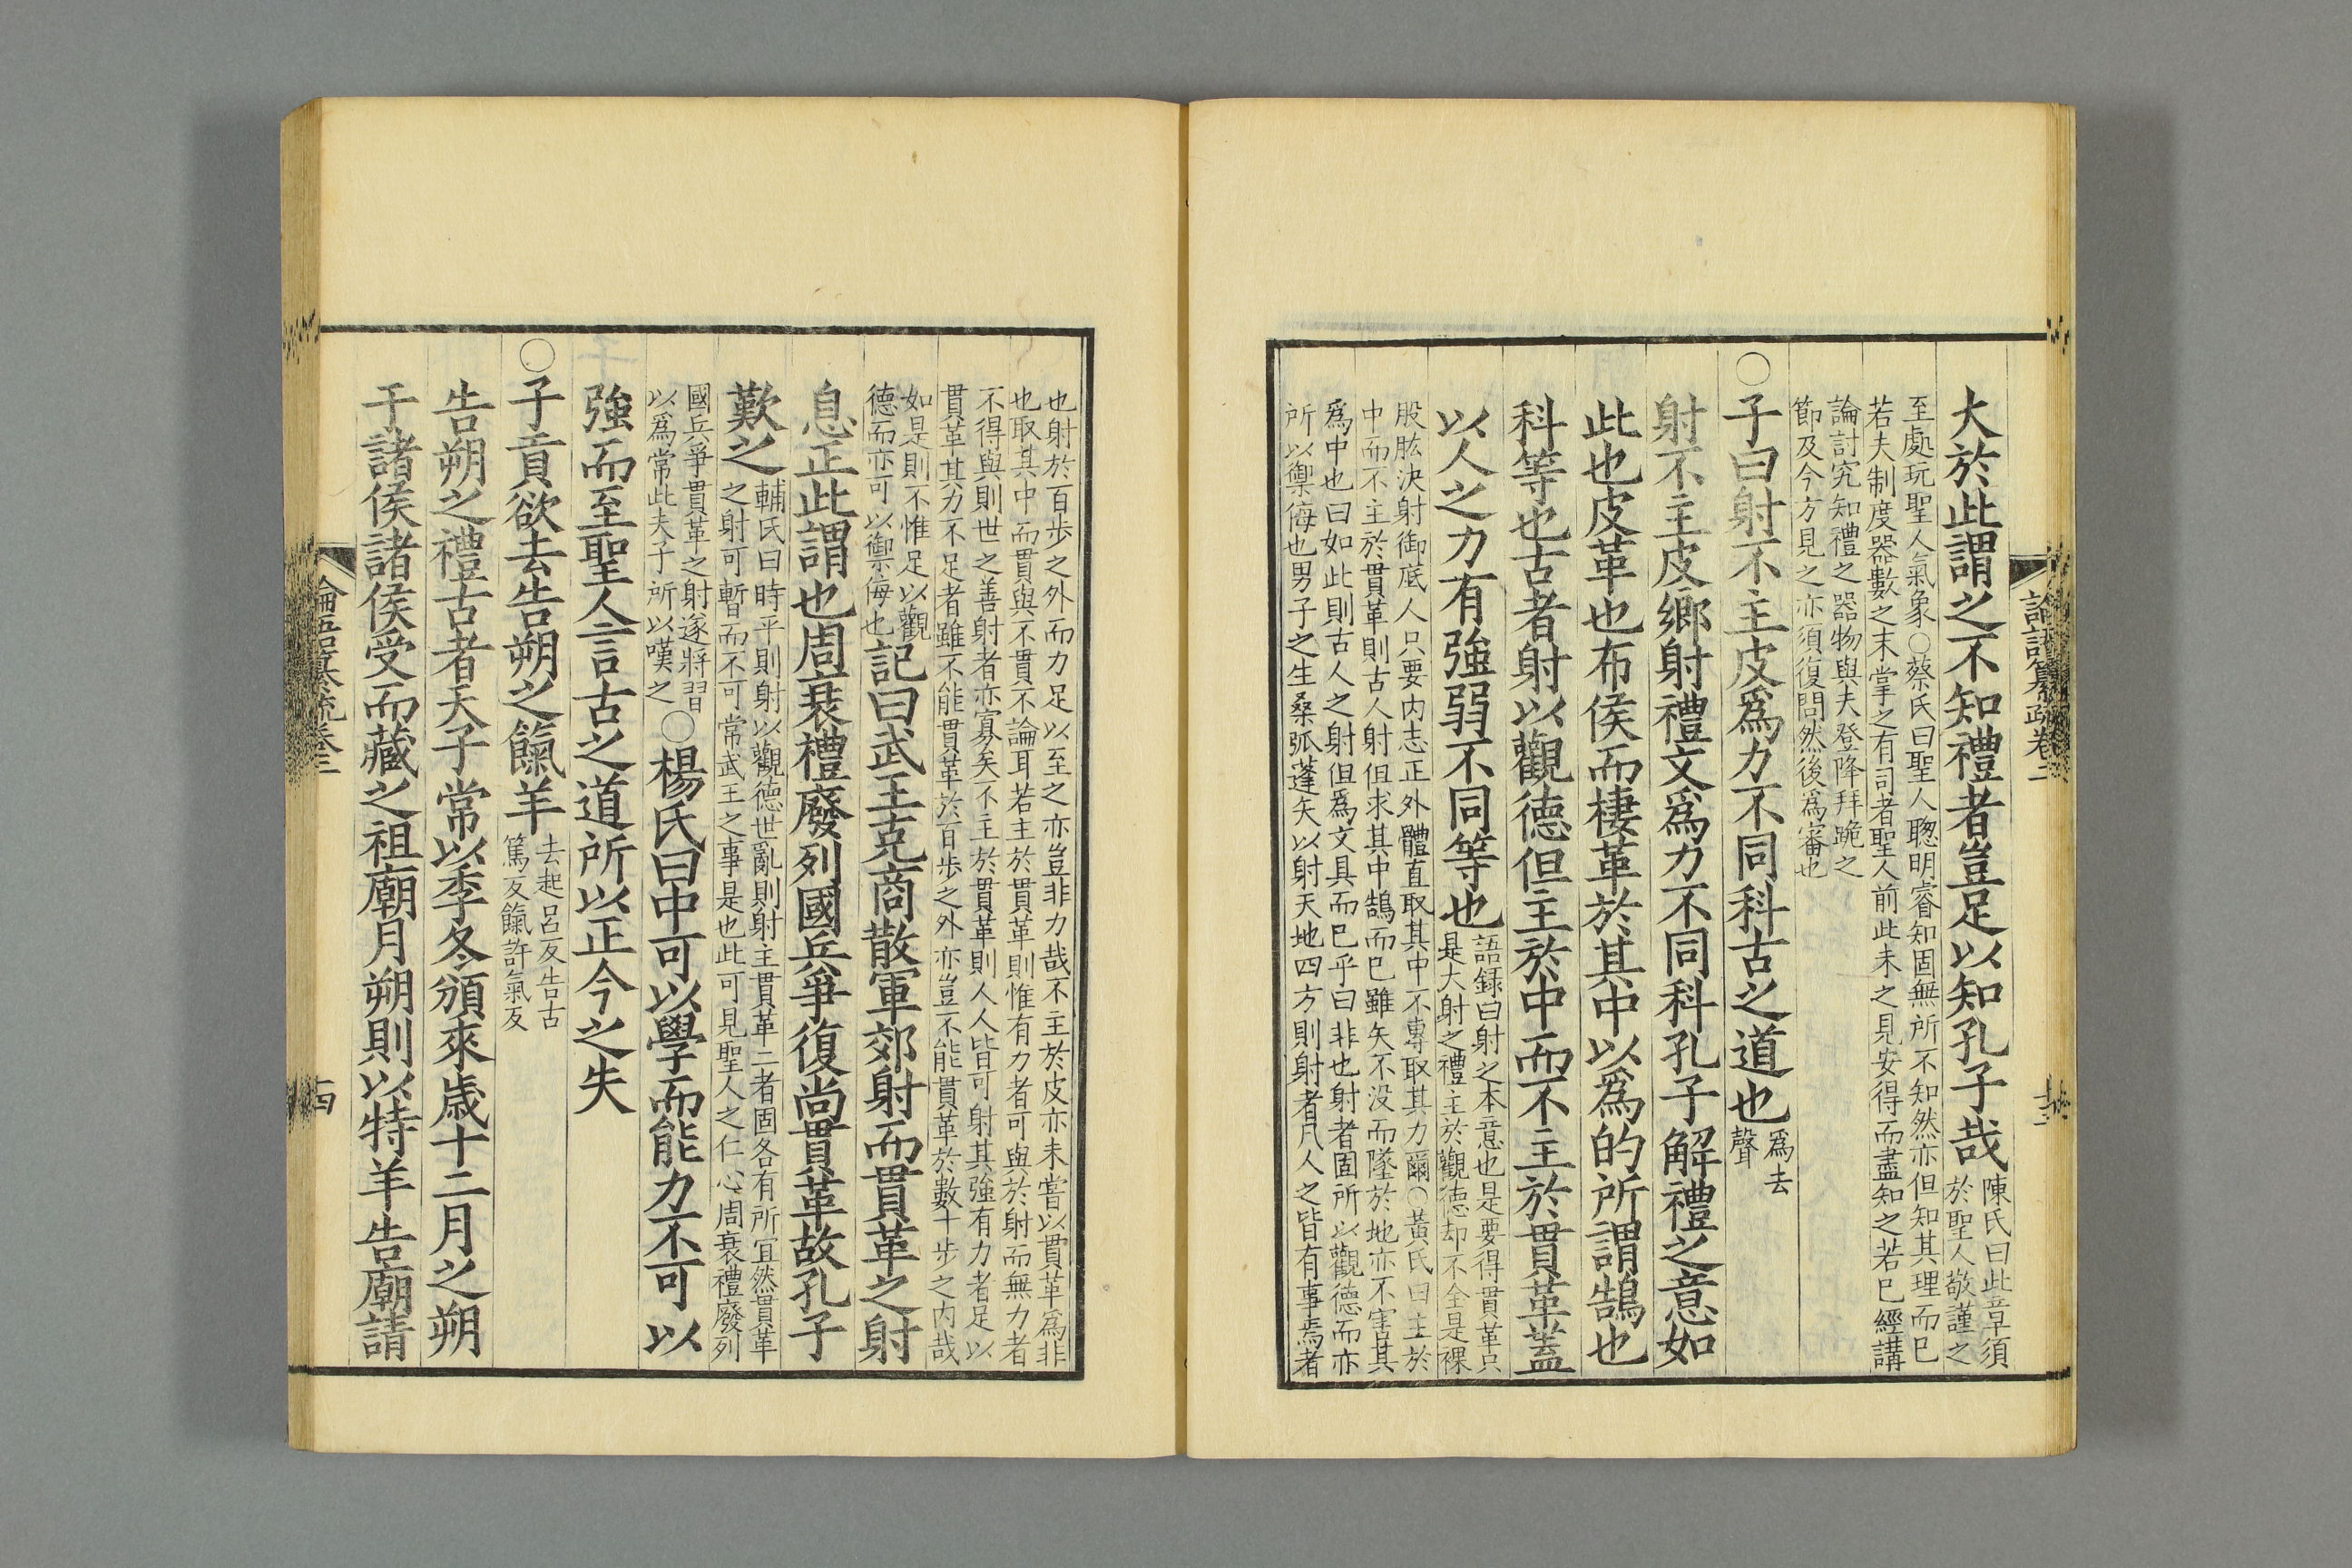 論語纂疏卷二
十三
大於此謂之不知禮者豈足以知孔子哉
陳氏曰此章須
於聖人敬謹之
至處玩聖人氣象○蔡氏曰聖人聰明睿知固無所不知然亦但知其理而已
若夫制度器數之末掌之有司者聖人前此未之見安得而盡知之若已經講
論討究知禮之器物與夫登降拜跪之
節及今方見之亦須復問然後為審也
○子曰射不主皮爲力不同科古之道也
爲去
聲
射不主皮鄉射禮文爲力不同科孔子解禮之意如
此也皮革也布侯而棲革於其中以爲的所謂鵠也
科等也古者射以觀德但主於中而不主於貫革蓋
以人之力有強弱不同等也
語錄曰射之本意也是要得貫革只
是大射之禮主於觀德却不全是裸
股肱決射御底人只要内志正外體直取其中不專取其力爾○黃氏曰主於
中而不主於貫革則古人射但求其中鵠而已雖矢不没而墜於地亦不害其
爲中也曰如此則古人之射但爲文具而已乎曰非也射者固所以觀德而亦
所以禦侮也男子之生桑弧蓬矢以射天地四方則射者凡人之皆有事焉者
也射於百步之外而力足以至之亦豈非力哉不主於皮亦未嘗以貫革爲非
也取其中而貫與不貫不論耳若主於貫革則惟有力者可與於射而無力者
不得與則世之善射者亦寡矣不主於貫革則人人皆可射其強有力者足以
貫革其力不足者雖不能貫革於百步之外亦豈不能貫革於數十步之内哉
如是則不惟足以觀
德而亦可以禦侮也
記曰武王克商散軍郊射而貫革之射
息正此謂也周衰禮廢列國兵爭復尚貫革故孔子
歎之
輔氏曰時平則射以觀德世亂則射主貫革二者固各有所宜然貫革
之射可暫而不可常武王之事是也此可見聖人之仁心周衰禮廢列
國兵爭貫革之射遂將習
以爲常此夫子所以嘆之
○楊氏曰中可以學而能力不可以
強而至聖人言古之道所以正今之失
○子貢欲去告朔之餼羊
去起呂反告古
篤反餼許氣反
告朔之禮古者天子常以季冬頒來歲十二月之朔
于諸侯諸侯受而藏之祖廟月朔則以特羊告廟請
論語纂疏卷二
十四